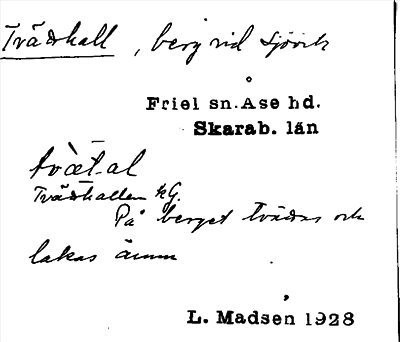 Trädhall, berg vid Sjövik
Friel sn. Åse hd.
Skarab. län
tvǣt-al
Tvädhallen kG.
På berget tvädas och
lakas ämm
L. Madsen 1928